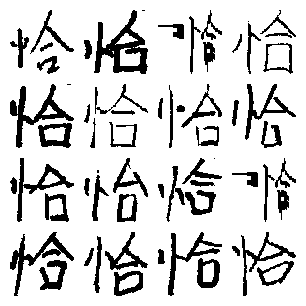 恰恰恰恰
恰恰恰恰
恰恰恰恰
恰恰恰恰